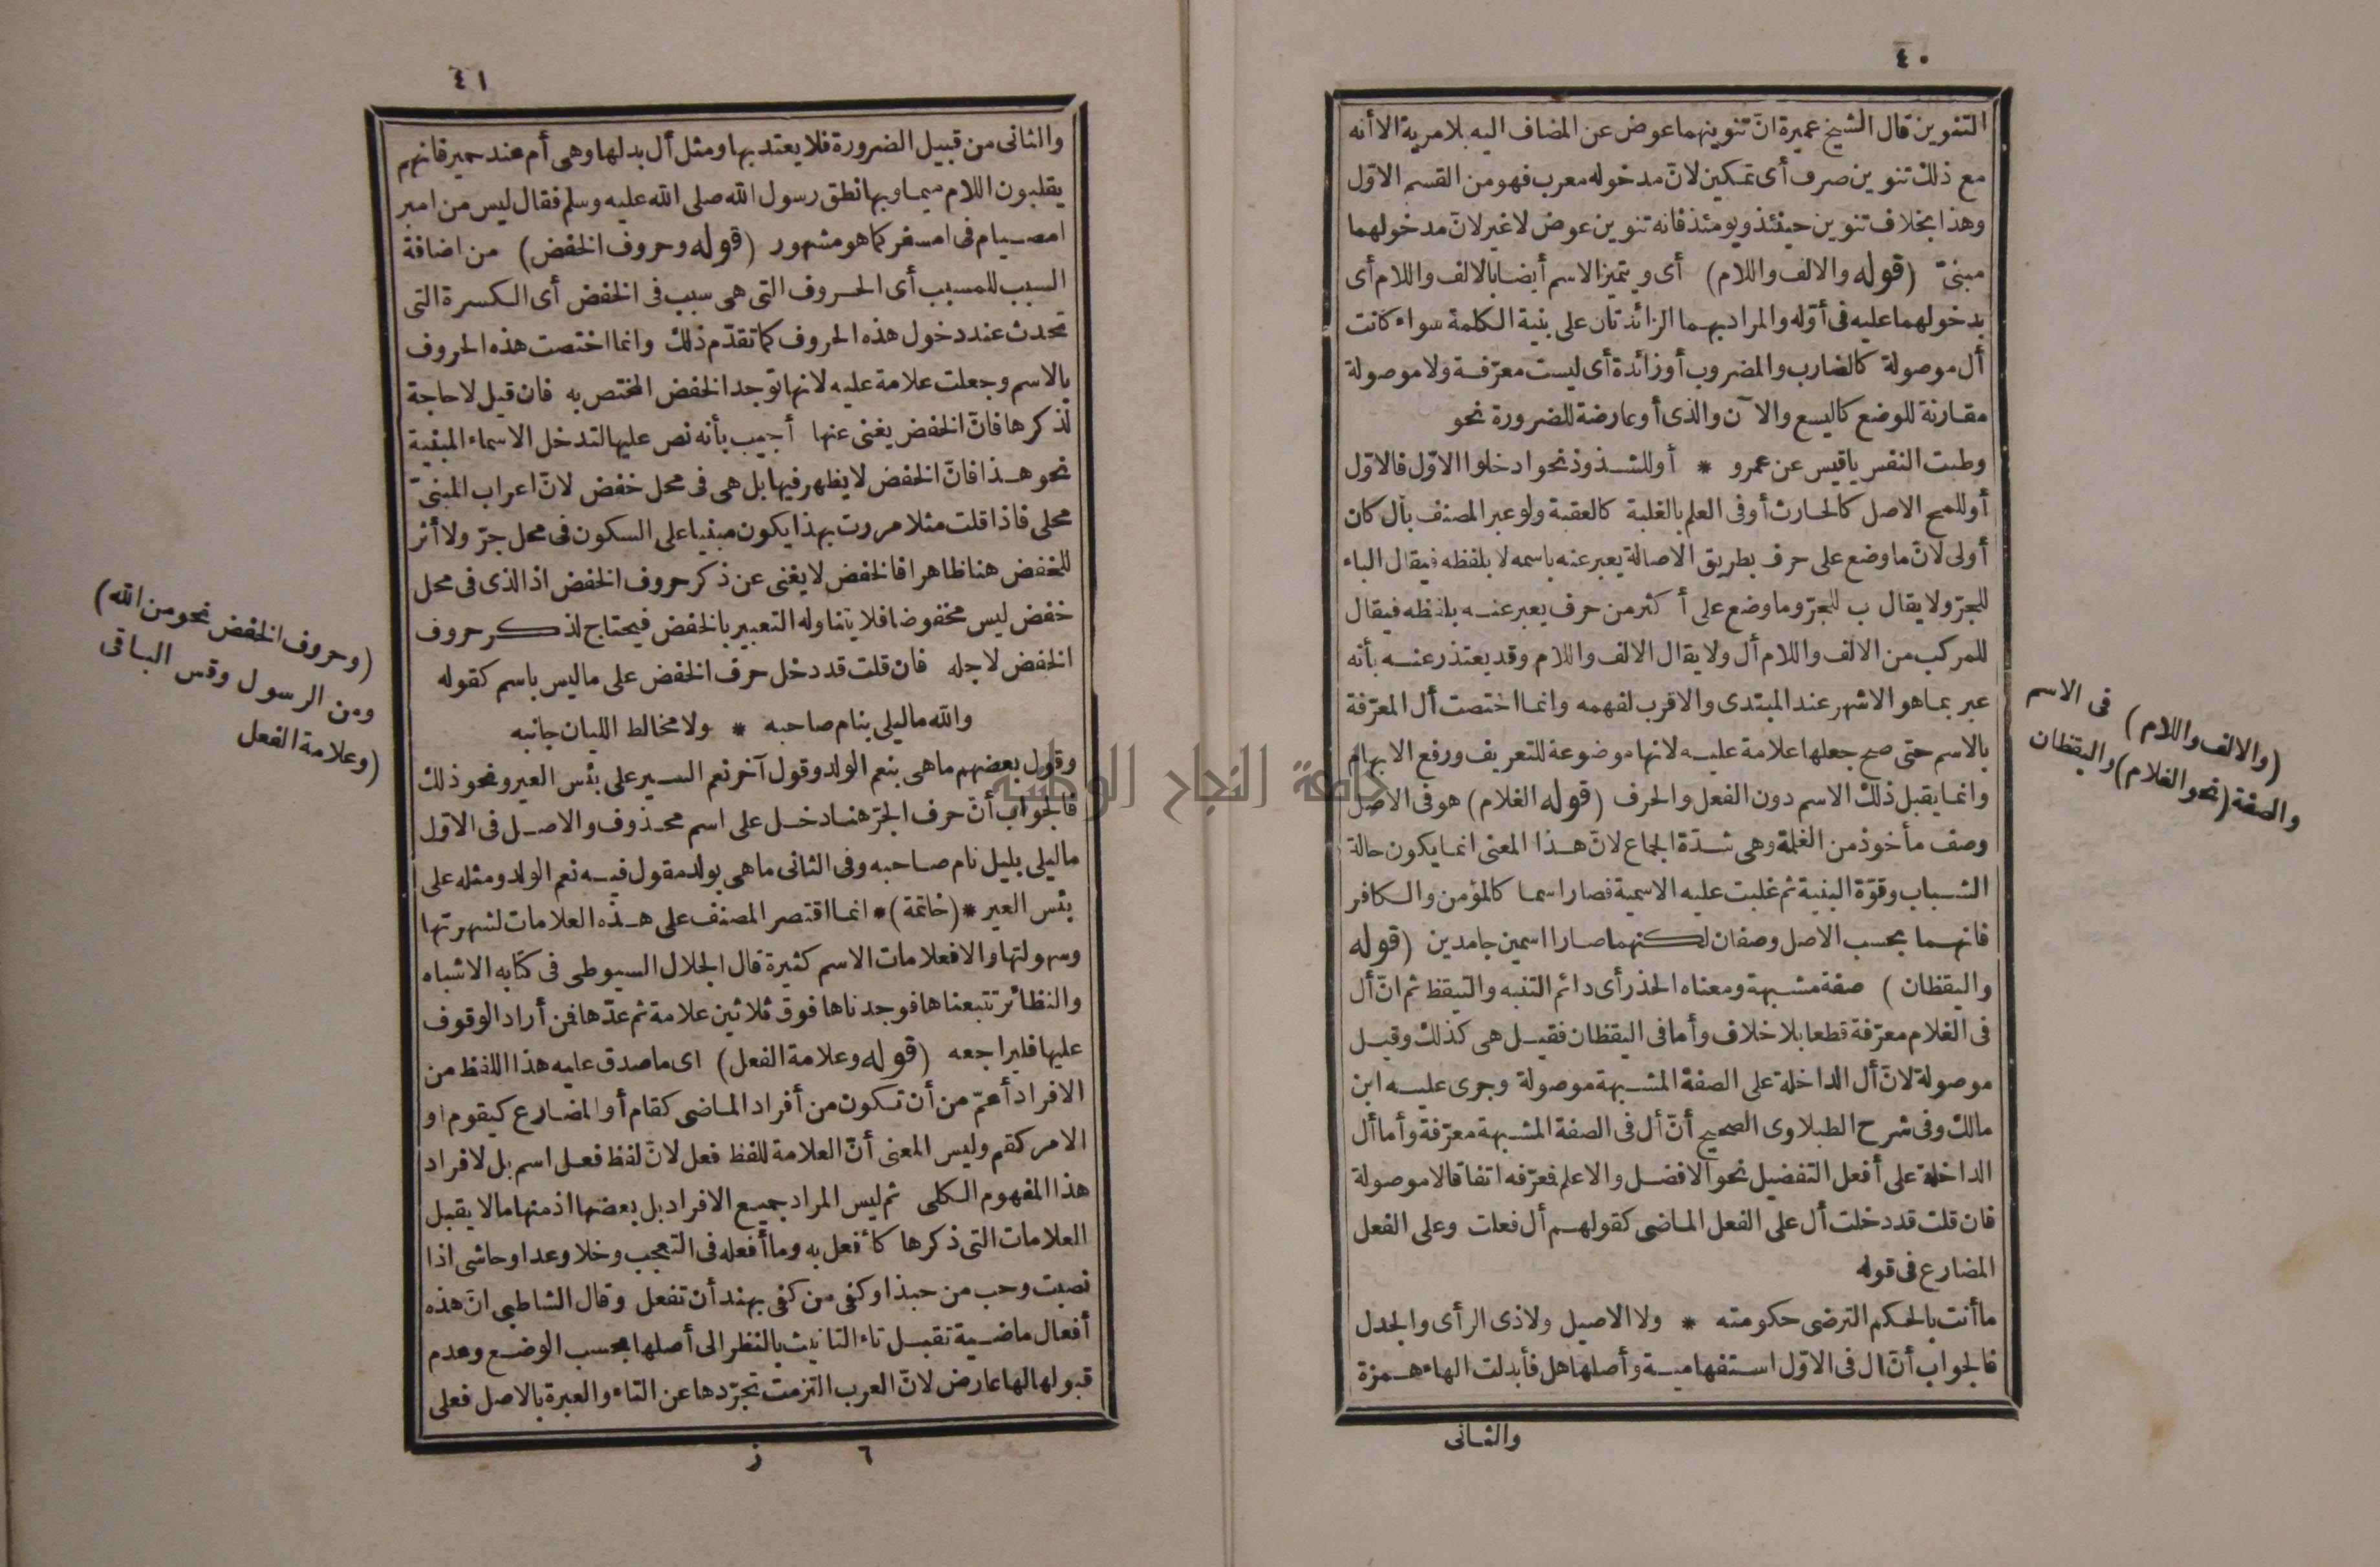 ٤٠
التنوين قال الشيخ عميرة انّ تنوينهما عوض عن المضاف اليه بلا مرية الا أنه
مع ذلك تنوين صرف أى تمكين لانّ مدخوله معرب فهو من القسم الاوّل
وهذا بخلاف تنوين حينئذ ويومئذ فانه تنوين عوض لا غير لانّ مدخولهما
مبنىّ (قوله والالف واللام) أى ويتميز الاسم أيضا بالالف واللام أى
بدخولهما عليه فى أوّله والمراد بهما الزائدتان على بنية الكلمة سواء كانت
أل موصولة كالضارب والمضروب أو زائدة أى ليست معرّفة ولا موصولة
مقارنة للوضع كاليسع والآن والذى أو عارضة للضرورة نحو
وطبت النفس ياقيس عن عمرو * أو للشذوذ نحو ادخلوا الاوّل فالاوّل
أو للمح الاصل كالحارث أو فى العلم بالغلبة كالعقبة ولو عبر المصنف بأل كان
أولى لانّ ما وضع على حرف بطريق الاصالة يعبر عنه باسمه لا بلفظه فيقال الباء
للجرّ ولا يقال ب للجرّ وما وضع على أكثر من حرف يعبر عنه بلفظه فيقال
للمركب من الالف واللام أل ولا يقال الالف واللام وقد يعتذر عنه بأنه
عبر بما هو الاشهر عند المبتدى والاقرب لفهمه وانما اختصت أل المعرّفة
بالاسم حتى صح جعلها علامة عليه لانها موضوعة للتعريف ورفع الابهام
وانما يقبل ذلك الاسم دون الفعل والحرف (قوله الغلام) هو فى الاصل
وصف مأخوذ من الغلمة وهى شدّة الجماع لانّ هذا المعنى انما يكون حالة
الشباب وقوّة البنية ثم غلبت عليه الاسمية فصار اسما كالمؤمن والكافر
فانهما بحسب الاصل وصفان لكنهما صارا اسمين جامدين (قوله
واليقظان) صفة مشبهة ومعناه الحذر أى دائم التنبه والتيقظ ثم انّ أل
فى الغلام معرّفة قطعا بلا خلاف وأما فى اليقظان فقيل هى كذلك وقيل
موصولة لانّ أل الداخلة على الصفة المشبهة موصولة وجرى عليه ابن
مالك وفى شرح الطبلاوى الصحيح أنّ أل فى الصفة المشبهة معرّفة وأما أل
الداخلة على أفعل التفضيل نحو الافضل والاعلم فعرّفه اتفاقا لا موصولة
فان قلت قد دخلت أل على الفعل الماضى كقولهم أل فعلت وعلى الفعل
المضارع فى قوله
ما أنت بالحكم الترضى حكومته * ولا الاصيل ولا ذى الرأى والجدل
فالجواب أنّ ال فى الاوّل استفهامية وأصلها هل فأبدلت الهاء همزة
والثانى
(والالف واللام) فى الاسم
والصفة (نحو الغلام) واليقظان
٤١
والثانى من قبيل الضرورة فلا يعتد بها ومثل أل بدلها وهى أم عند حمير فانهم
يقلبون اللام ميما وبها نطق رسول الله صلى الله عليه وسلم فقال ليس من امبر
امصيام فى امسفر كما هو مشهور (قوله وحروف الخفض) من اضافة
السبب للمسبب أى الحروف التى هى سبب فى الخفض أى الكسرة التى
تحدث عند دخول هذه الحروف كما تقدّم ذلك وانما اختصت هذه الحروف
بالاسم وجعلت علامة عليه لانها توجد الخفض المختص به فان قيل لا حاجة
لذكرها فانّ الخفض يغنى عنها أجيب بأنه نص عليها لتدخل الاسماء المبنية
نحو هذا فانّ الخفض لا يظهر فيها بل هى فى محل خفض لانّ اعراب المبنىّ
محلى فاذا قلت مثلا مررت بهذا يكون مبنيا على السكون فى محل جرّ ولا أثر
للخفض هنا ظاهرا فالخفض لا يغنى عن ذكر حروف الخفض اذ الذى فى محل
خفض ليس مخفوضا فلا يتناوله التعبير بالخفض فيحتاج لذكر حروف
الخفض لاجله فان قلت قد دخل حرف الخفض على ما ليس باسم كقوله
والله ما ليلى بنام صاحبه * ولا مخالط الليان جانبه
وقول بعضهم ما هى بنعم الولد وقول آخر نعم السير على بئس العير ونحو ذلك
فالجواب أنّ حرف الجرّ هنا دخل على اسم محذوف والاصل فى الاوّل
ما ليلى بليل نام صاحبه وفى الثانى ما هى بولد مقول فيه نعم الولد ومثله على
بئس العير *(خاتمة)* انما اقتصر المصنف على هذه العلامات لشهرتها
وسهولتها والا فعلامات الاسم كثيرة قال الجلال السيوطى فى كتابه الاشباه
والنظائر تتبعناها فوجدناها فوق ثلاثين علامة ثم عدّها فمن أراد الوقوف
عليها فليراجعه (قوله وعلامة الفعل) اى ما صدق عليه هذا اللفظ من
الافراد أعمّ من أن تكون من أفراد الماضى كقام أو المضارع كيقوم او
الامر كقم وليس المعنى أنّ العلامة للفظ فعل لانّ لفظ فعل اسم بل لافراد
هذا المفهوم الكلى ثم ليس المراد جميع الافراد بل بعضها اذ منها ما لا يقبل
العلامات التى ذكرها كأفعل به وما أفعله فى التعجب وخلا وعدا وحاشى اذا
نصبت وحب من حبذا وكفى من كفى بهند أن تفعل وقال الشاطبى انّ هذه
أفعال ماضية تقبل تاء التانيث بالنظر الى أصلها بحسب الوضع وعدم
قبولها لها عارض لانّ العرب التزمت تجرّدها عن التاء والعبرة بالاصل فعلى
٦ ز
(وحروف الخفض نحو من الله)
ومن الرسول وقس الباقى
(وعلامة الفعل
جامعة النجاح الوطنية